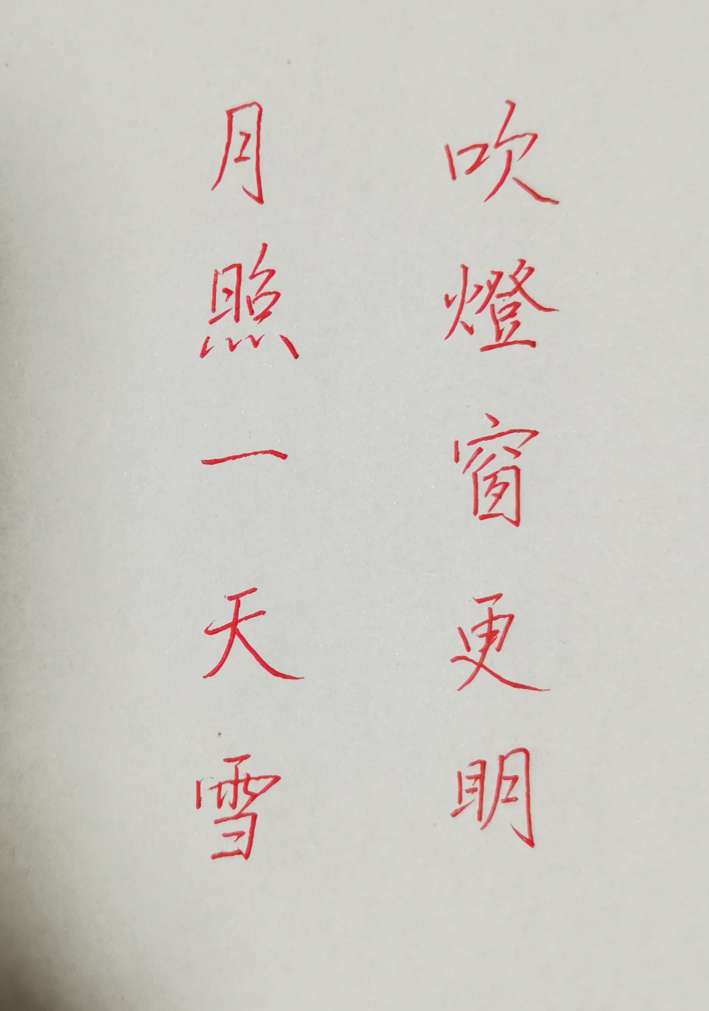 吹燈窗更明
月照一天雪